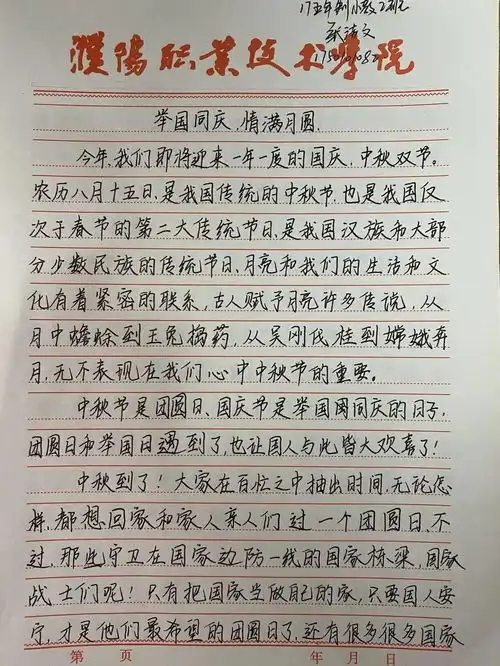 17五年制小教2班
张洁文
濮阳职业技术学院
举国同庆，情满月圆.
今年，我们即将迎来一年一度的国庆，中秋双节。
农历八月十五日，是我国传统的中秋节，也是我国仅
次于春节的第二大传统节日，是我国汉族和大部
分少数民族的传统节日、月亮和我们的生活和文
化有着紧密的联系，古人赋予月亮许多传说，从
月中蟾蜍到玉兔捣药，从吴刚伐桂到嫦娥奔
月，无不表现在我们心中中秋节的重要。
中秋节是团圆日、国庆节是举国同庆的日子，
团圆日和举国日遇到了，也让国人与此皆大欢喜了！
中秋到了！大家在百忙之中抽出时间，无论怎
样，都想回家和家人亲人们过一个团圆日、不
过，那些守卫在国家边防一线的国家栋梁，国家
战士们呢！只有把国家当做自己的家，只要国人安
宁，才是他们最希望的团圆日了，还有很多很多国家
第 页 年 月 日